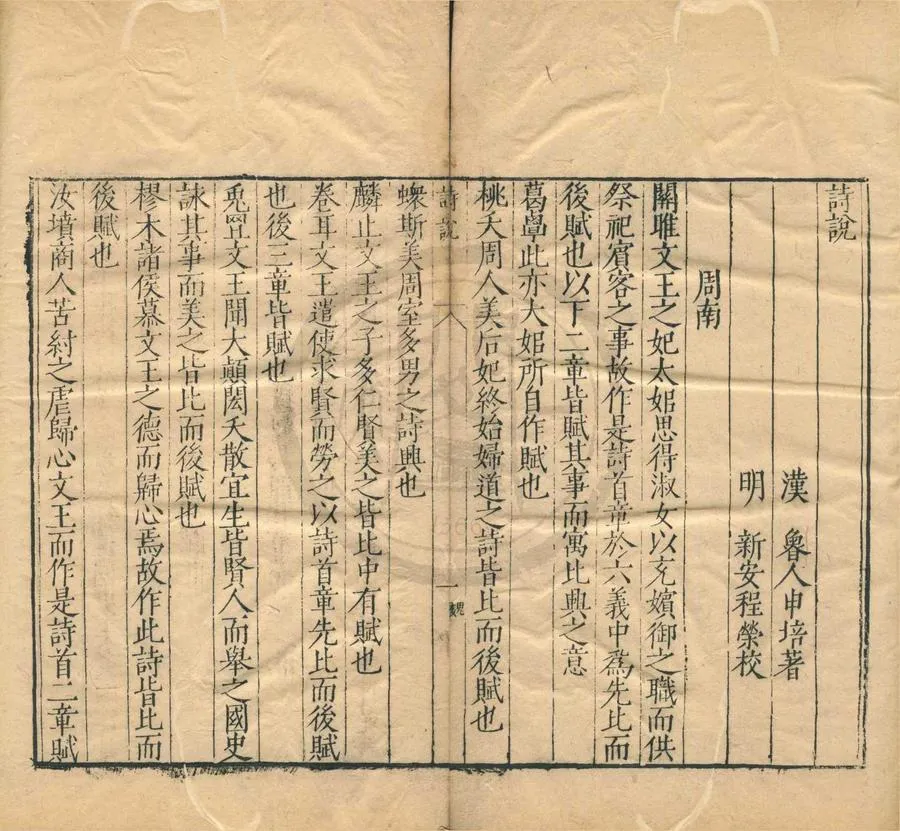 詩說
漢　魯人申培著
明　新安程榮校
周南
關雎文王之妃太姒思得淑女以充嬪御之職而供
祭祀賓客之事故作是詩首章於六義中爲先比而
後賦也以下二章皆賦其事而寓比興之意
葛覃此亦太姒所自作賦也
桃夭周人美后妃終始婦道之詩皆比而後賦也
詩說
一
螽斯美周室多男之詩興也
麟止文王之子多仁賢美之皆比中有賦也
卷耳文王遣使求賢而勞之以詩首章先比而後賦
也後三章皆賦也
兎罝文王聞大顛閎夭散宜生皆賢人而舉之國史
詠其事而美之皆比而後賦也
樛木諸侯慕文王之德而歸心焉故作此詩皆比而
後賦也
汝墳商人苦紂之虐歸心文王而作是詩首二章賦